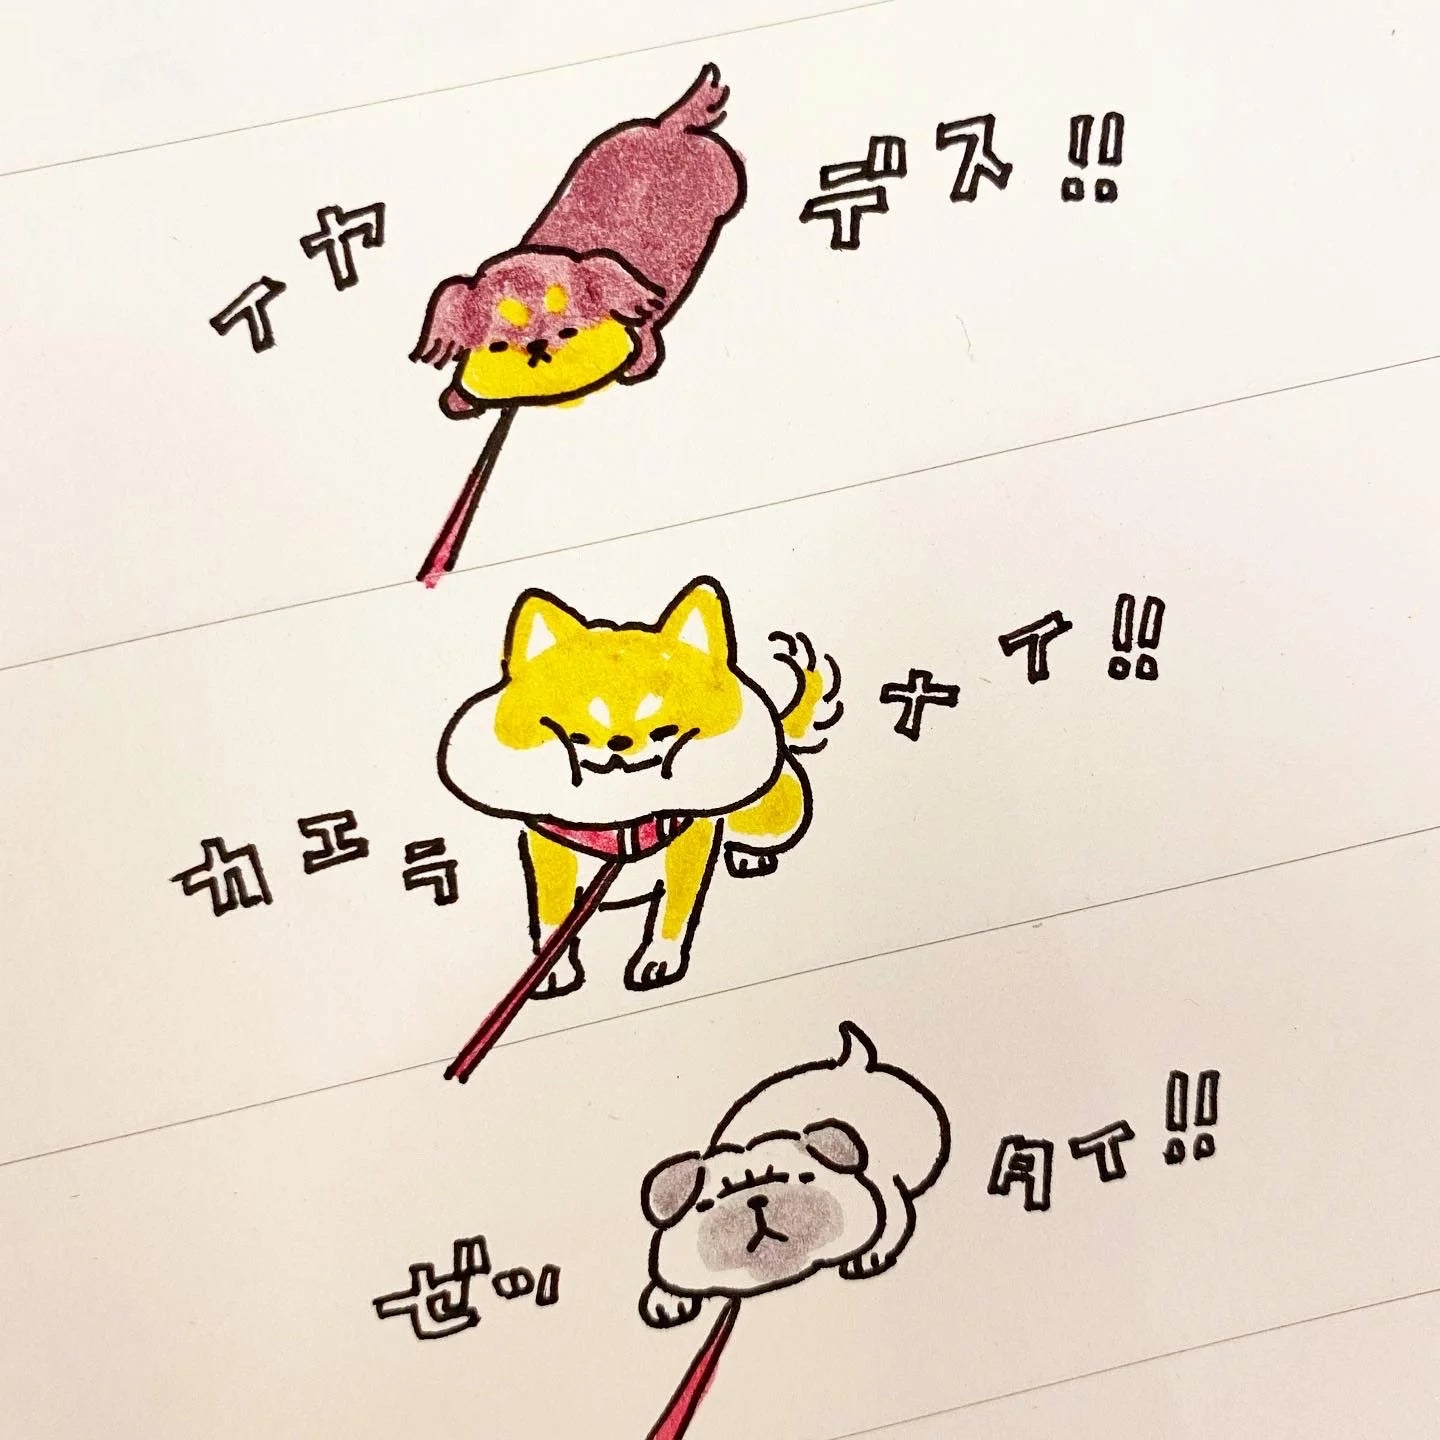 イヤデス!!
カエラナイ!!
ぜッタイ!!